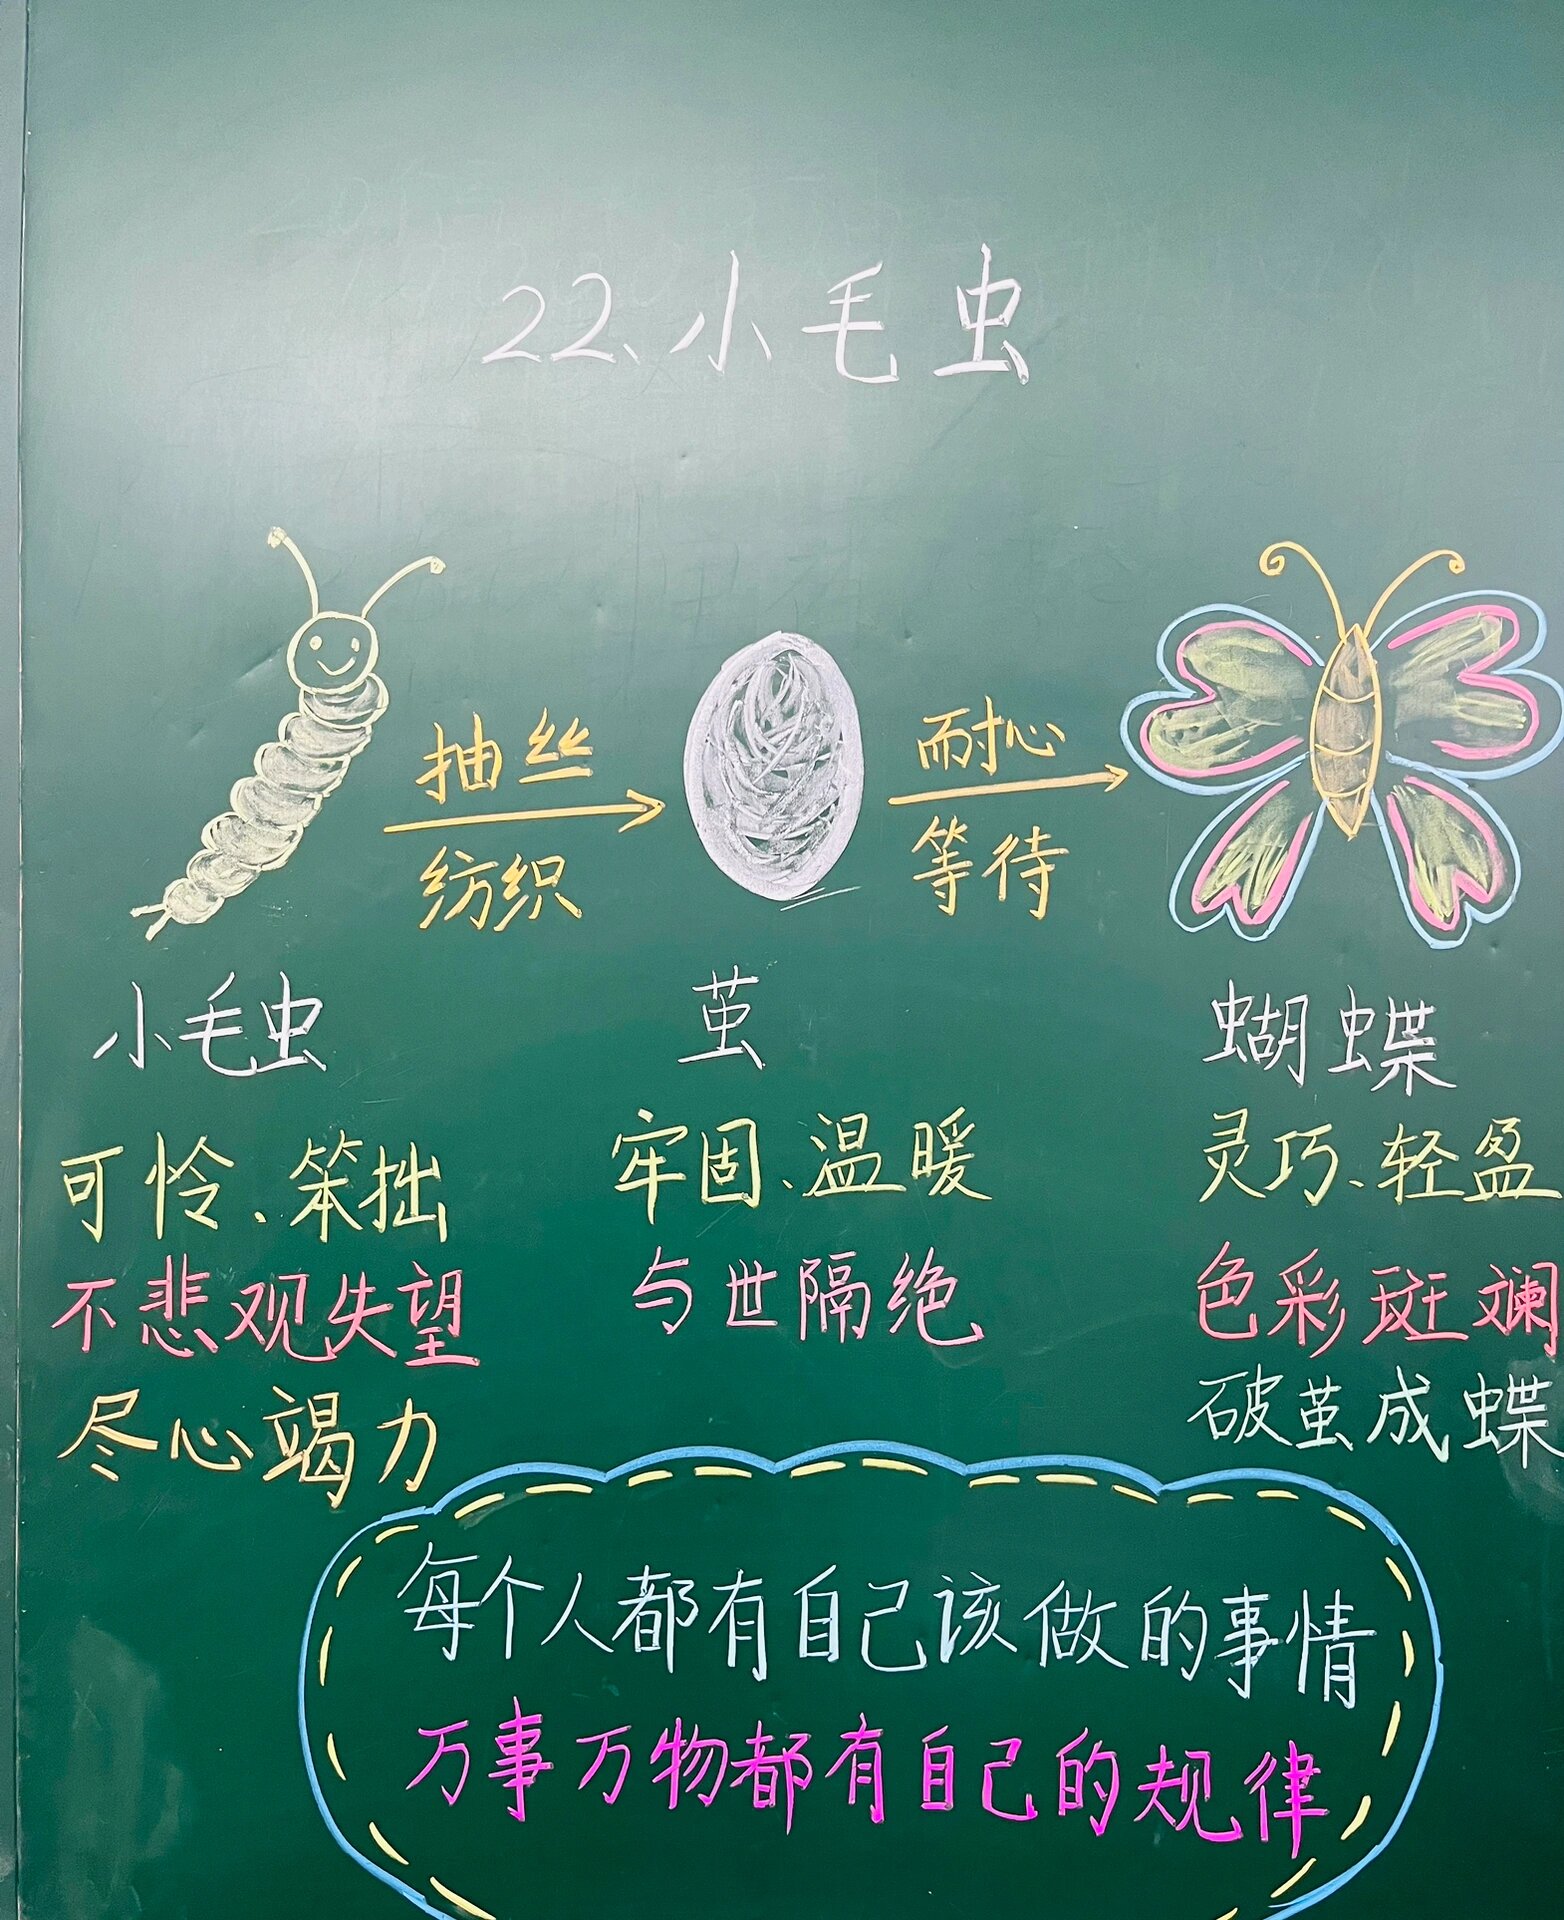 22、小毛虫
抽丝
纺织
耐心
等待
小毛虫
茧
蝴蝶
可怜、笨拙
牢固、温暖
灵巧、轻盈
不悲观失望
与世隔绝
色彩斑斓
尽心竭力
破茧成蝶
每个人都有自己该做的事情
万事万物都有自己的规律